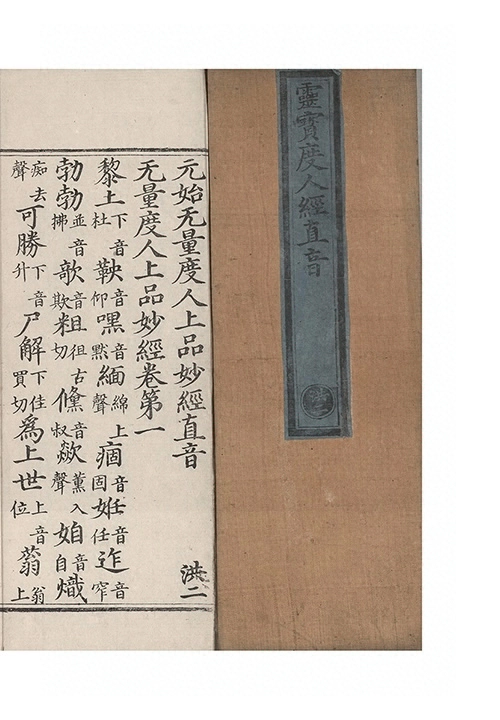 靈寶度人經直音
洪
元始无量度人上品妙經直音 洪二
无量度人上品妙經卷第一
黎土下音杜鞅音仰嘿音默緬綿上聲痼音固妊音任迮音窄
勃勃並音拂歌音欺粗徂古切儵音叔歘薰入聲音自熾
痴去聲可勝下音升尸解下佳買切爲上世上音位蓊翁上